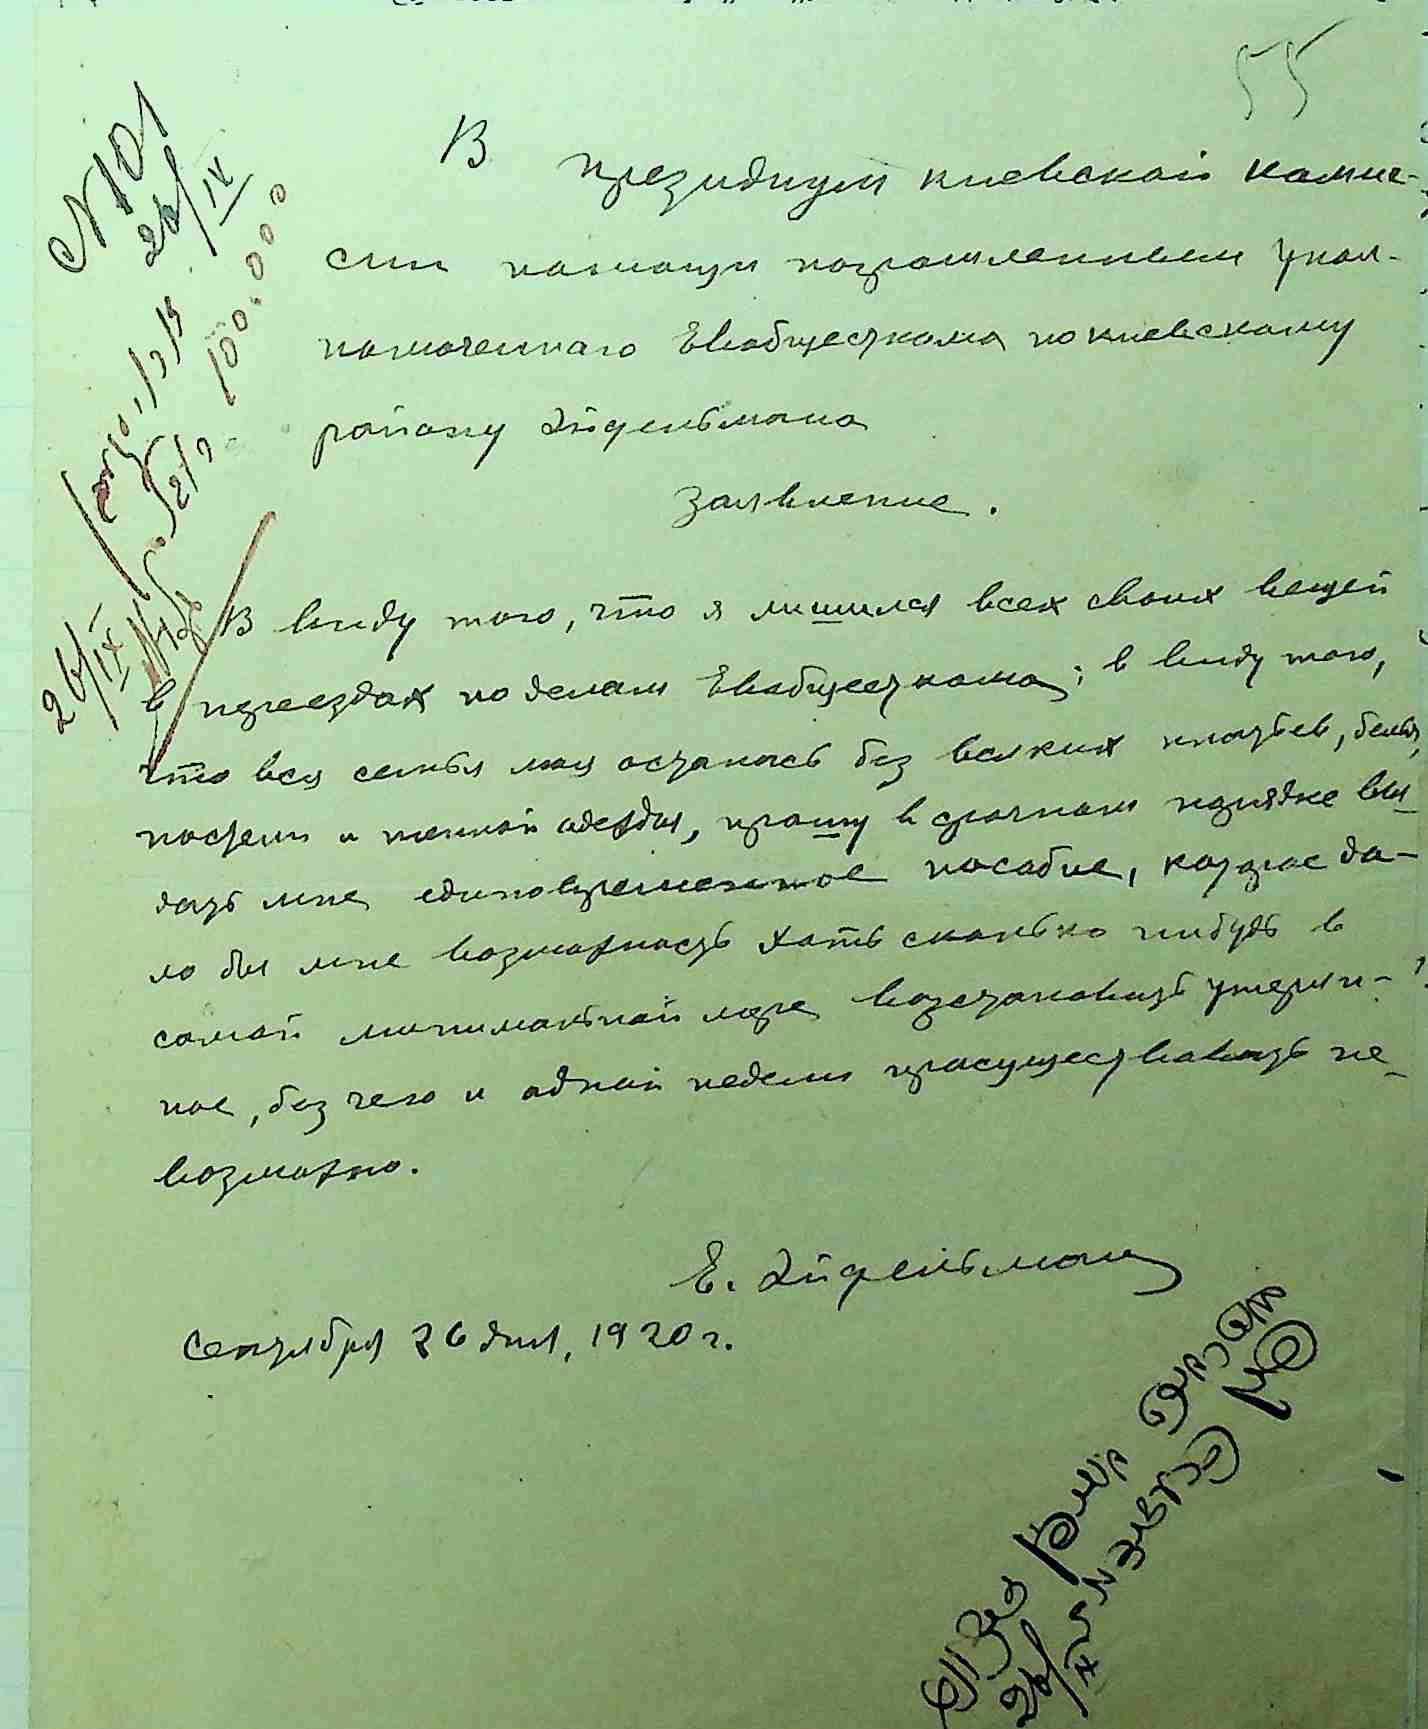 55
N 101
26/IX
100.000
26/IX
В президиум киевской комис-
сии помощи погромленным упол-
номоченнаго Евобщесткома по киевскому
району Эйдельмана
Заявление.
В виду того, что я лишился всех своих вещей
в приездах по делам Евобщесткома; в виду того,
что вся семья моя осталась без всяких платьев, белья,
постели и теплой одежды, прошу в срочном порядке вы-
дать мне единовременное пособие, которое да-
ло бы мне возможность хоть сколько нибудь в
самой минимальной мере возстановить утерян-
ное, без чего и одной недели просуществовать не-
возможно.
Е. Эйдельман
Сентября 26 дня, 1920 г.
26/IX